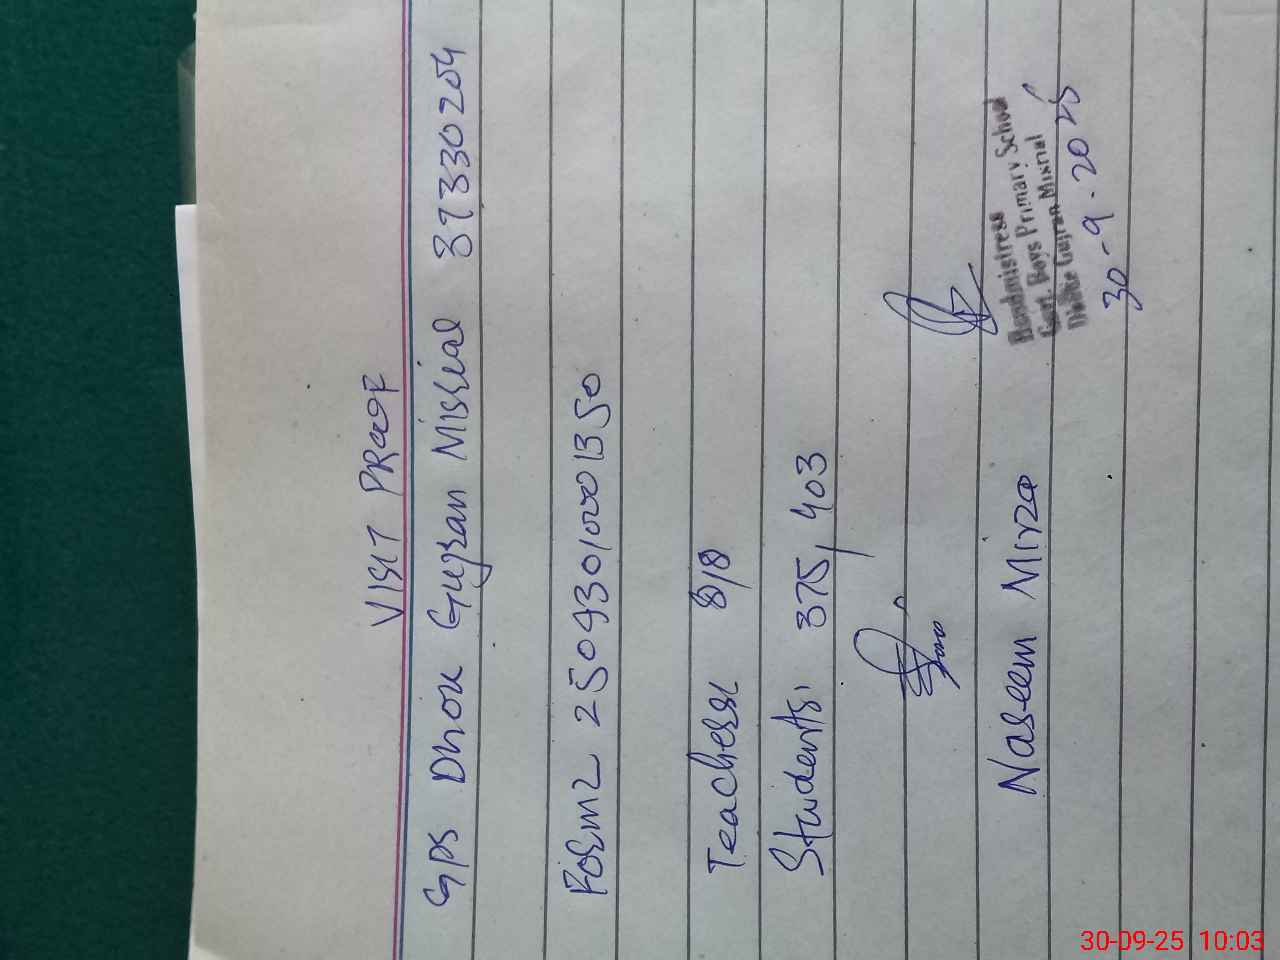 VISIT PROOF
GPS Dhok Gujran Missial 37330204
Form2 25093010001350
Teachers: 8/8
Students: 375, 403
Naseem Mirza
Headmistress
Govt. Boys Primary School
Dhoke Gujran Misrial
30-9-2025
30-09-25 10:03